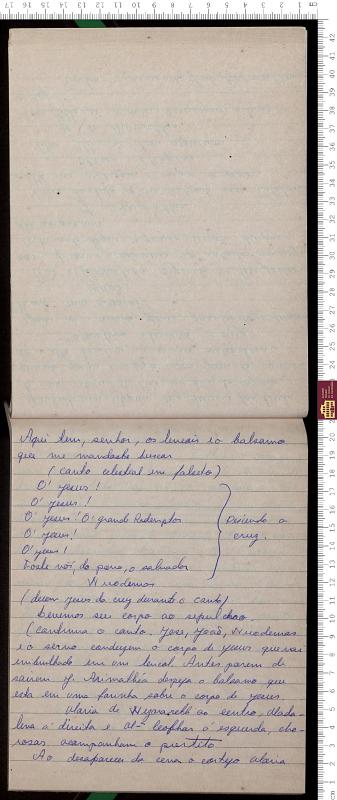 Aqui tem, senhor, os lencais e o balsamo
que me mandaste buscar
(canto celestial em falsete)
O' Jesus!
O' Jesus!
O' Jesus! O' grande Redemptor
O' Jesus!
O' Jesus!
Foste vós, do povo, o salvador
Descendo a
cruz.
Nicodemos
(descem Jesus da cruz durante o canto)
Levemos seu corpo ao sepulchro.
(continua o canto. José, João, Nicodemos
e o servo conduzem o corpo de Jesus que vai
embrulhado em um lencal. Antes porem de
sairem J. Arimathéa despeja o balsamo que
está em uma jarrinha sobre o corpo de Jesus.
Maria de Nazareth ao centro, Mada-
lena á direita e Cleophas á esquerda, cho-
rosas acompanham o prestito
Ao desapparecer da cena o cortejo Maria